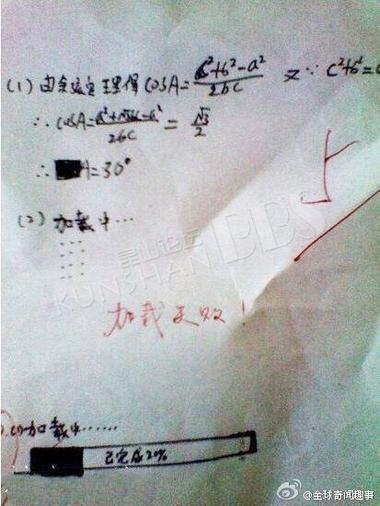 (1) 由余弦定理得 cosA = (c²+b²-a²)/2bc 又∵ c²+b²=
∴ cosA = /2bc = √3/2
∴ A=30°
(2) 加载中…
加载失败!
加载中……
已完成20%
昆山论坛
KUNSHAN BBS
@全球奇闻趣事